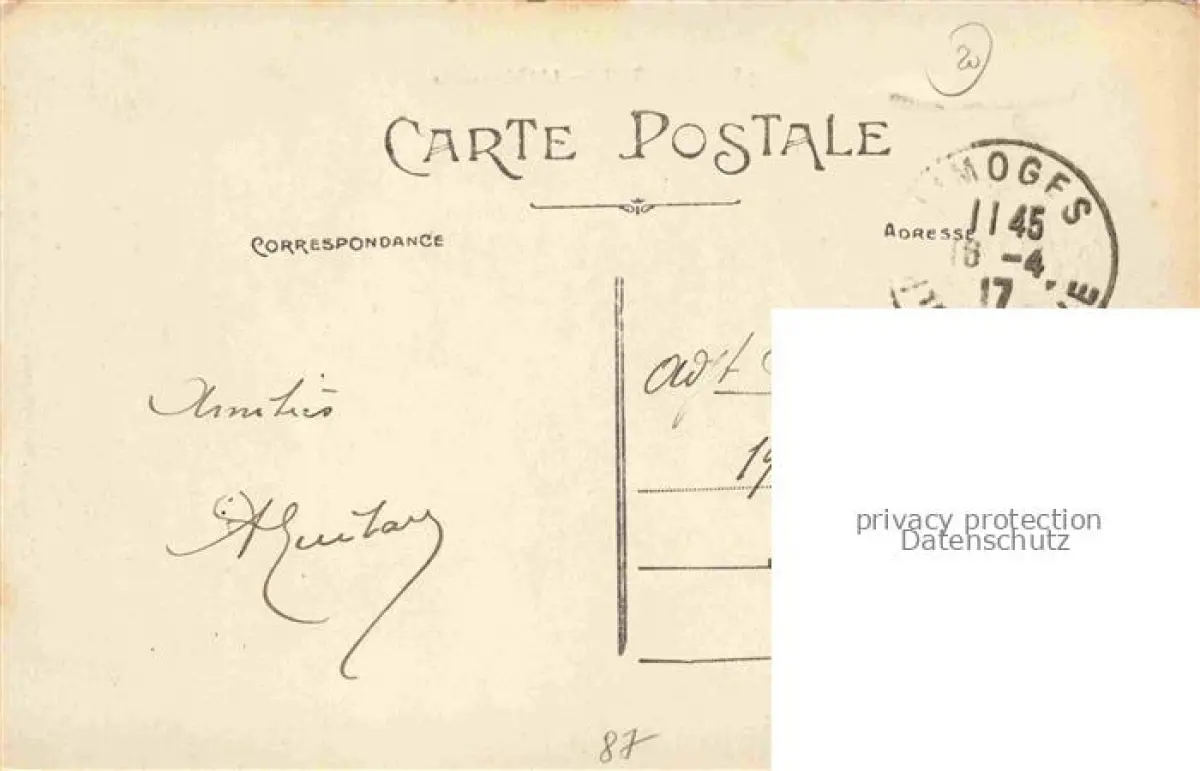 20
CARTE POSTALE
CORRESPONDANCE
ADRESSE
LIMOGES
11 45
16 -4
17
Adjt
19
Amitiés
privacy protection
Datenschutz
87